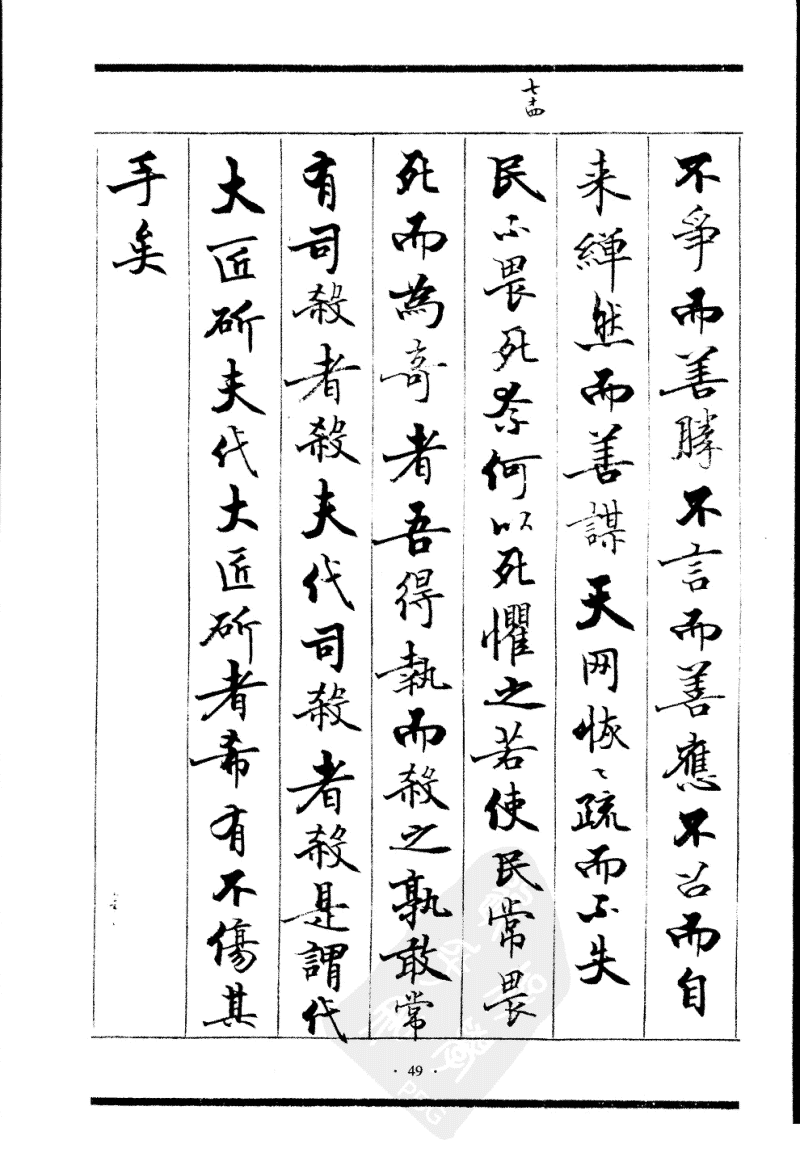 七十四
不爭而善勝不言而善應不召而自
来繟然而善謀天网恢〻疏而不失
民不畏死奈何以死懼之若使民常畏
死而為奇者吾得執而殺之孰敢常
有司殺者殺夫代司殺者殺是謂代
大匠斫夫代大匠斫者希有不傷其
手矣
· 49 ·